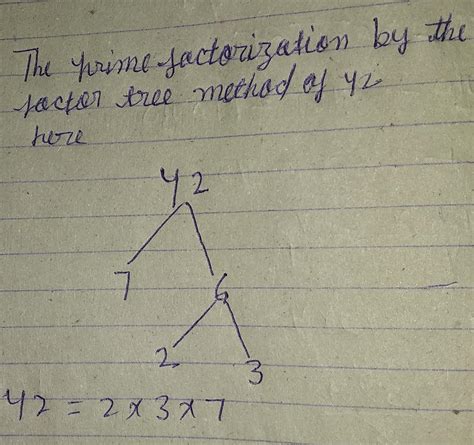 The prime factorization by the
factor tree method of 42
here
42
7 6
2 3
42 = 2 × 3 × 7